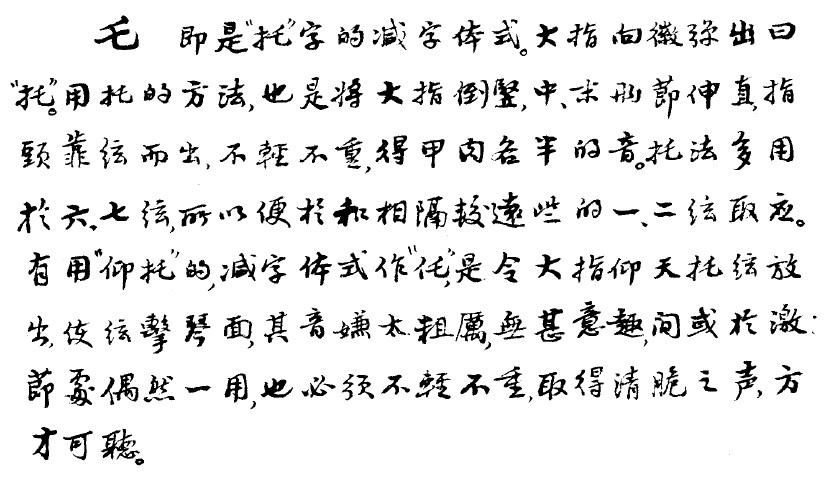 乇 即是“托”字的減字体式。大指向徽弹出曰
“托”。用托的方法,也是将大指倒豎,中、末两節伸直,指
頭靠弦而出,不輕不重,得甲肉各半的音。托法多用
於六、七弦,所以便於和相隔較遠些的一、二弦取应。
有用“仰托”的,減字体式作“仛”,是令大指仰天托弦放
出,使弦擊琴面,其音嫌太粗厲,無甚意趣,间或於激
節處偶然一用,也必须不輕不重,取得清脆之声,方
才可聽。